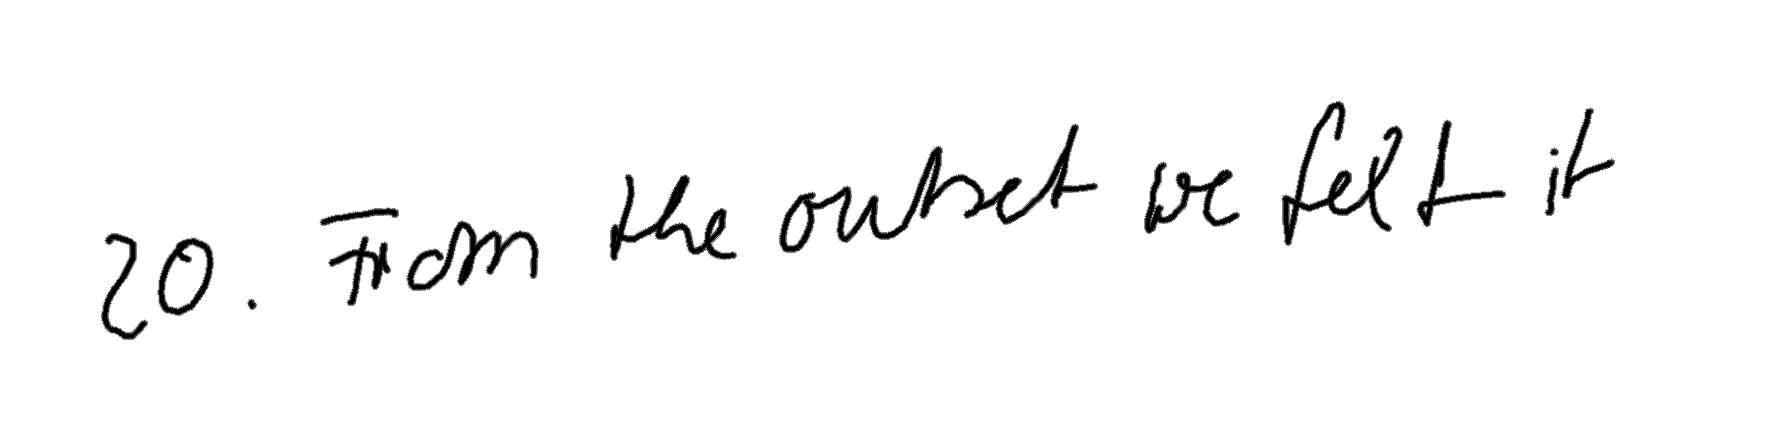 20. From the outset we felt it